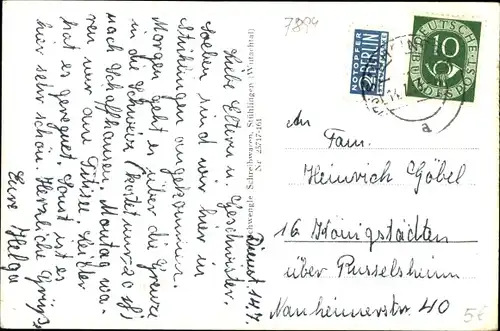 7894
Dienst. 14.7.
Liebe Eltern u. Geschwister.
Soeben sind wir hier in
Stühlingen angekommen.
Morgen geht es über die Grenze
in die Schweiz (kostet nur 20 Pf)
nach Schaffhausen. Montag wa-
ren wir am Titisee. Leider
hat es geregnet. Sonst ist es
hier sehr schön. Herzliche Grüße
Eure Helga
Schreibwaren, Stühlingen (Wutachtal)
Nr. 25717-464
NOTOPFER
2 BERLIN
STEUERMARKE
DEUTSCHE BUNDESPOST
10
a
An
Fam.
Heinrich Göbel
16 Königstädten
über Russelsheim
Nauheimerstr. 40
5€